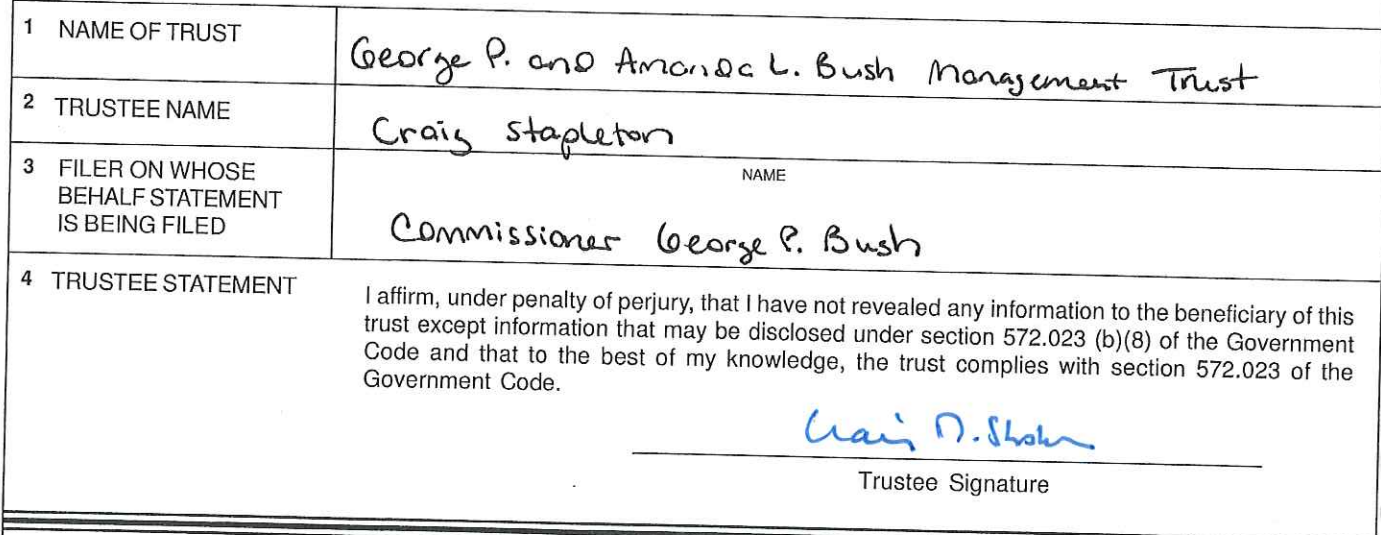 1 NAME OF TRUST
George P. and Amanda L. Bush Management Trust
2 TRUSTEE NAME
Craig Stapleton
3 FILER ON WHOSE
BEHALF STATEMENT
IS BEING FILED
NAME
Commissioner George P. Bush
4 TRUSTEE STATEMENT
I affirm, under penalty of perjury, that I have not revealed any information to the beneficiary of this
trust except information that may be disclosed under section 572.023 (b)(8) of the Government
Code and that to the best of my knowledge, the trust complies with section 572.023 of the
Government Code.
Trustee Signature